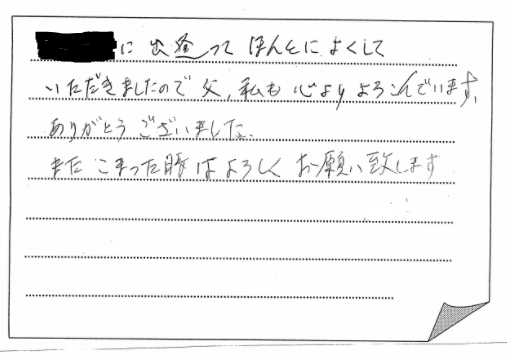 に出逢って ほんとによくして
いただきましたので父、私も心よりよろこんでいます。
ありがとうございました。
またこまった時はよろしくお願い致します